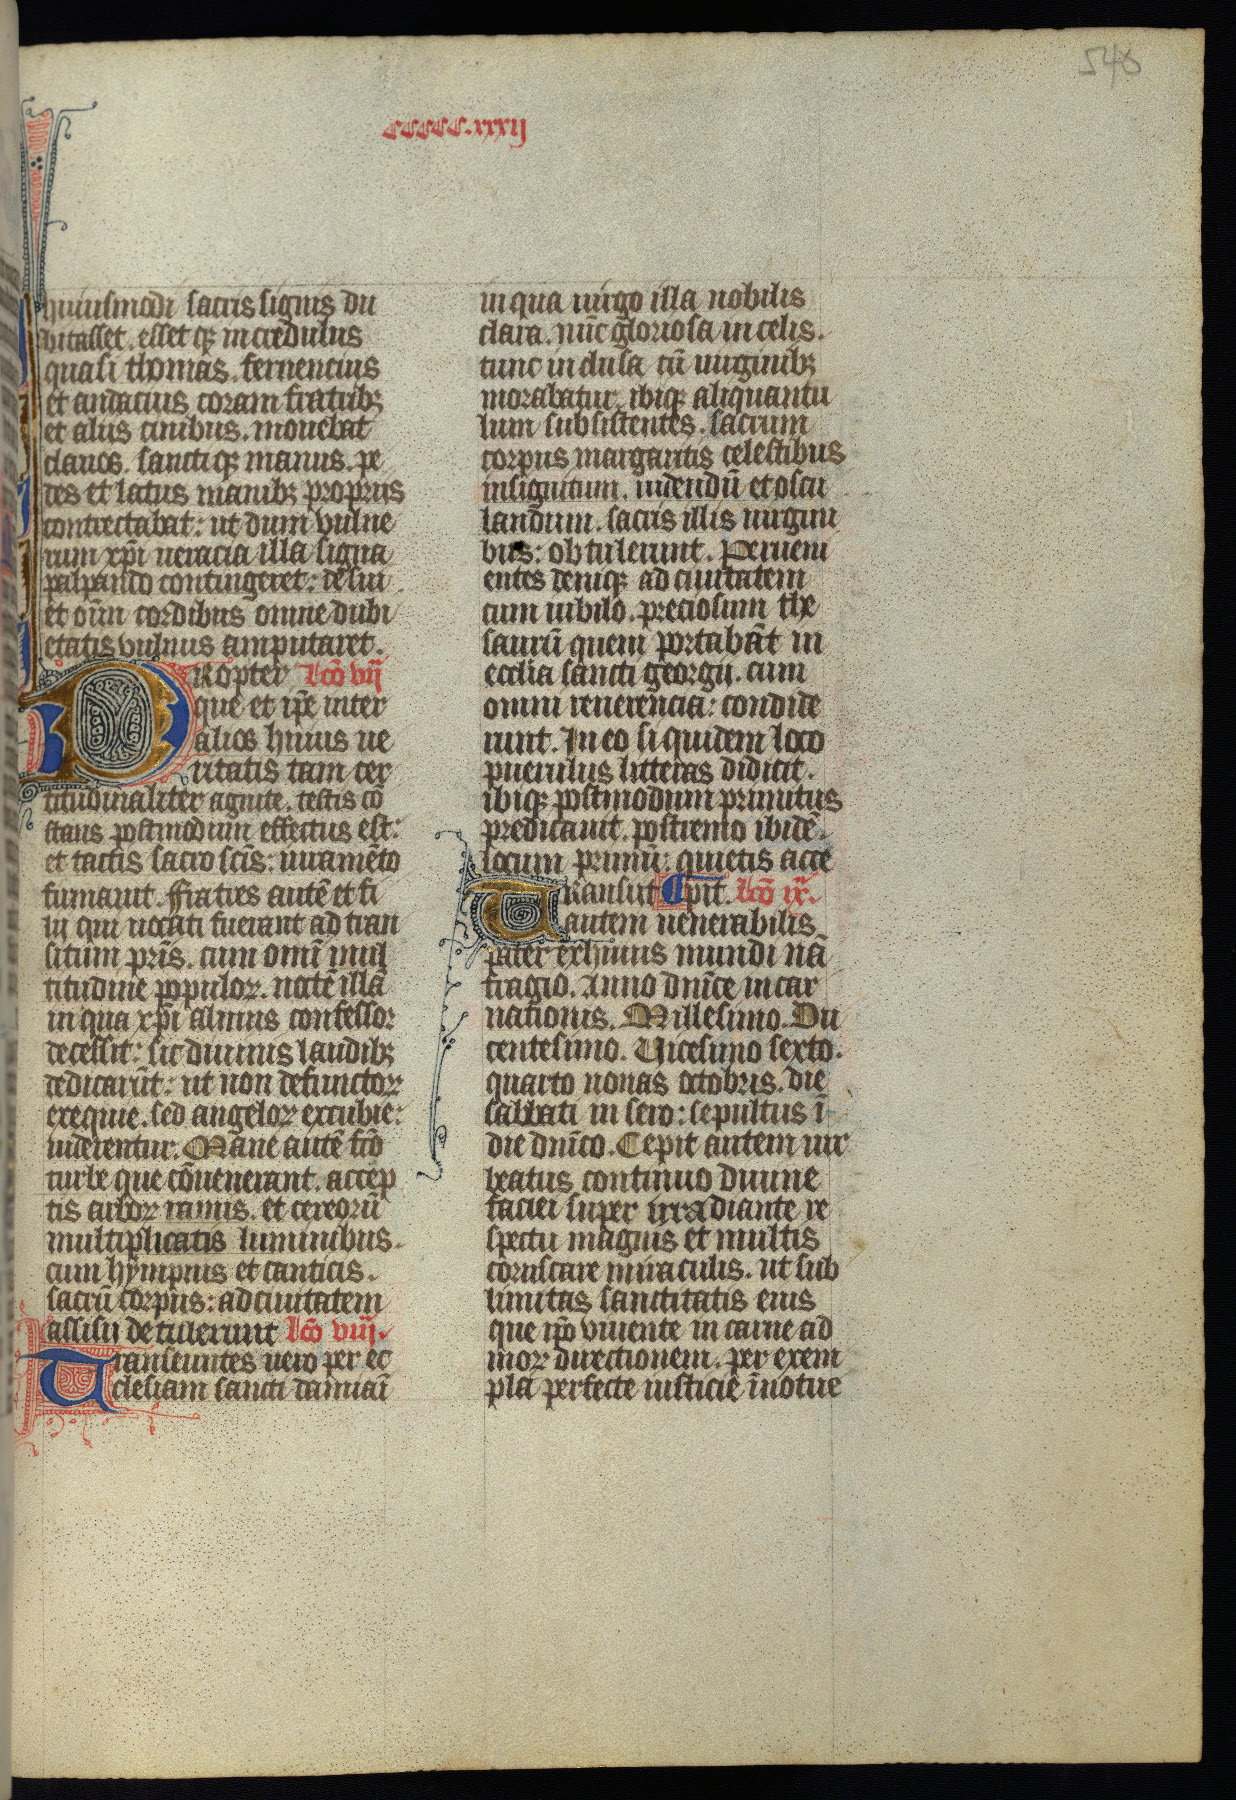 540
CCCCC.xxxij
huiusmodi sacris signis du
bitasset. esset qꝫ incredulus
quasi thomas. feruencius
et audacius coram fratribꝫ
et aliis ciuibus. mouebat
clauos. sanctiqꝫ manus. pe
des et latus manibꝫ propriis
contrectabat: ut dum vulne
rum xp̄i ueracia illa signa
palpando contingeret: de sui
et om̄n cordibus omne dubi
etatis vulnus amputaret.
PRopter lc̄o vij
que et ip̄e inter
alios huius ue
ritatis tam cer
titudinaliter agnite. testis cō
stans postmodum effectus est:
et tactis sacro scīs: iuramēto
firmauit. Fratres autē et fi
lii qui uocati fuerant ad tran
situm pr̄is. cum omī mul
titudine populoꝝ. noctē illā
in qua xp̄i almus confessor
decessit: sic diuinis laudibꝫ
dedicarūt: ut non defunctoꝝ
exequie. sed angeloꝝ excubie:
uiderentur. Mane autē fc̄o
turbe que cōuenerant. accep
tis arboꝝ ramis. et cereorū
multiplicatis luminibus.
cum hympnis et canticis.
sacrū corpus: ad ciuitatem
assisii detulerunt lc̄o viij.
Transeuntes uero per ec
clesiam sancti damiani
in qua uirgo illa nobilis
clara. nūc gloriosa in celis.
tunc inclusa cū uirginibꝫ
morabatur. ibiqꝫ aliquantu
lum subsistentes. sacrum
corpus margaritis celestibus
insignitum. uidendū et oscu
landum. sacris illis uirgini
bus: obtulerunt. Perueni
entes deniqꝫ ad ciuitatem
cum iubilo. preciosum the
saurū quem portabāt in
ecclīa sancti georgii. cum
omni reuerencia: condide
runt. In eo siquidem loco
puerulus litteras didicit.
ibiqꝫ postmodum primitus
predicauit. postremo ibidē.
locum primū: quietis acce
TRansiit pit. lc̄o ix.
autem uenerabilis
pater ex huius mundi nā
fragio. Anno dn̄ice incar
nationis. Millesimo. Du
centesimo. Uicesimo sexto.
quarto nonas octobris. die
sabbati in sero: sepultus ī
die dn̄ico. Cepit autem uir
beatus continuo diuine
faciei super irradiante re
spectu magnis et multis
coruscare miraculis. ut sub
limitas sanctitatis eius
que ip̄o viuente in carne ad
moꝝ directionem. per exem
pla perfecte iusticie īnotue